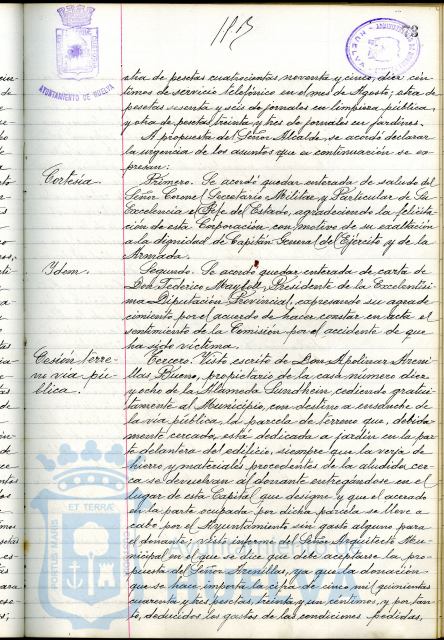 73
AYUNTAMIENTO DE HUELVA
otra de pesetas cuatrocientas noventa y cinco, diez cén-
timos de servicio telefónico en el mes de Agosto; otra de
pesetas sesenta y seis de jornales en limpieza pública,
y otra de pesetas treinta y tres de jornales en jardines.
A propuesta del Señor Alcalde, se acordó declarar
la urgencia de los asuntos que a continuación se ex-
presan:
Cortesía
Primero. Se acordó quedar enterada de saludo del
Señor Coronel Secretario Militar y Particular de Su
Excelencia el Jefe del Estado, agradeciendo la felicita-
ción de esta Corporación con motivo de su exaltación
a la dignidad de Capitán General del Ejército y de la
Armada.
Idem.
Segundo. Se acordó quedar enterada de carta de
Don Federico Presidente de la Excelentísi-
ma Diputación Provincial, expresando su agrade-
cimiento por el acuerdo de hacer constar en acta el
sentimiento de la Comisión por el accidente de que
ha sido víctima.
Cesión terre-
no vía pú-
blica.
Tercero. Visto escrito de Don Apolinar Areni-
llas Bueno, propietario de la casa número diez
y ocho de la Alameda Sundheim, cediendo gratui-
tamente al Municipio, con destino a ensanche de
la vía pública, la parcela de terreno que, debida-
mente cercada, está dedicada a jardín en la par-
te delantera del edificio, siempre que la verja de
hierro y materiales procedentes de la aludida cer-
ca se devuelvan al donante entregándose en el
lugar de esta Capital que designe y que el acerado
en la parte ocupada por dicha parcela se lleve a
cabo por el Ayuntamiento sin gasto alguno para
el donante; visto informe del Señor Arquitecto Mu-
nicipal en el que dice que debe aceptarse la pro-
puesta del Señor Arenillas, ya que la donación
que se hace importa la cifra de cinco mil quinientas
cuarenta y tres pesetas, treinta y un céntimos, y por tan-
to, deducidos los gastos de las condiciones pedidas,
PORTUS MARIS ET TERRAE